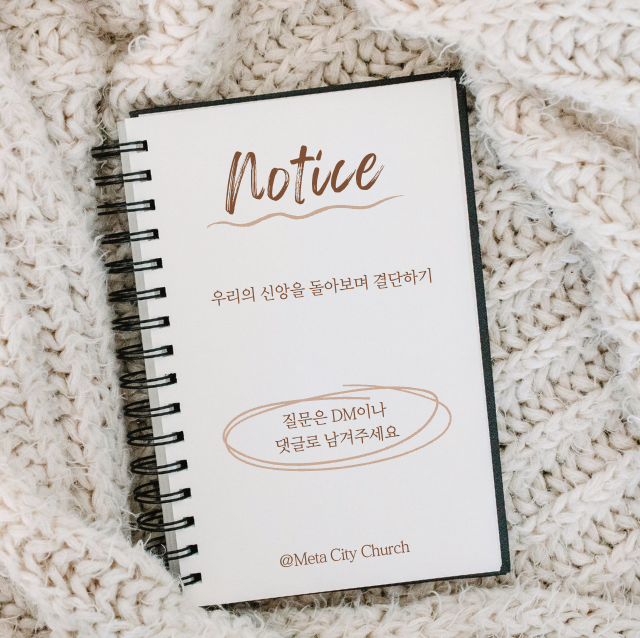 Notice
우리의 신앙을 돌아보며 결단하기
질문은 DM이나
댓글로 남겨주세요
@Meta City Church